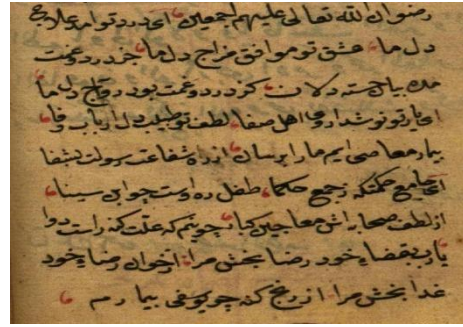 رضوان الله تعالی علیهم اجمعین ای درد تو امر علاج
دل ما عشق تو موافق مزاج دل ما جز درد و غمت
مده بیا خسته دلان کز درد و غمت بود رواج دل ما
ای یار تو نوشدار وی اهل صفا لطف تو طبیب دل ارباب وفا
بیمار معاصی ایم ما را برسان از ره شفاعت رسولت بشفا
ای جامع حکمتکه ز جمع حکما طفل ره اوست چو ابن سینا
از لطف صحابه اش معاجین کبار جوینم که علت کند راست دوا
یارب بقضاء خود رضا بخش مرا از خوان رضاء خود
غدا بخش مرا از رنج کنه چو یوسفی بیمارم